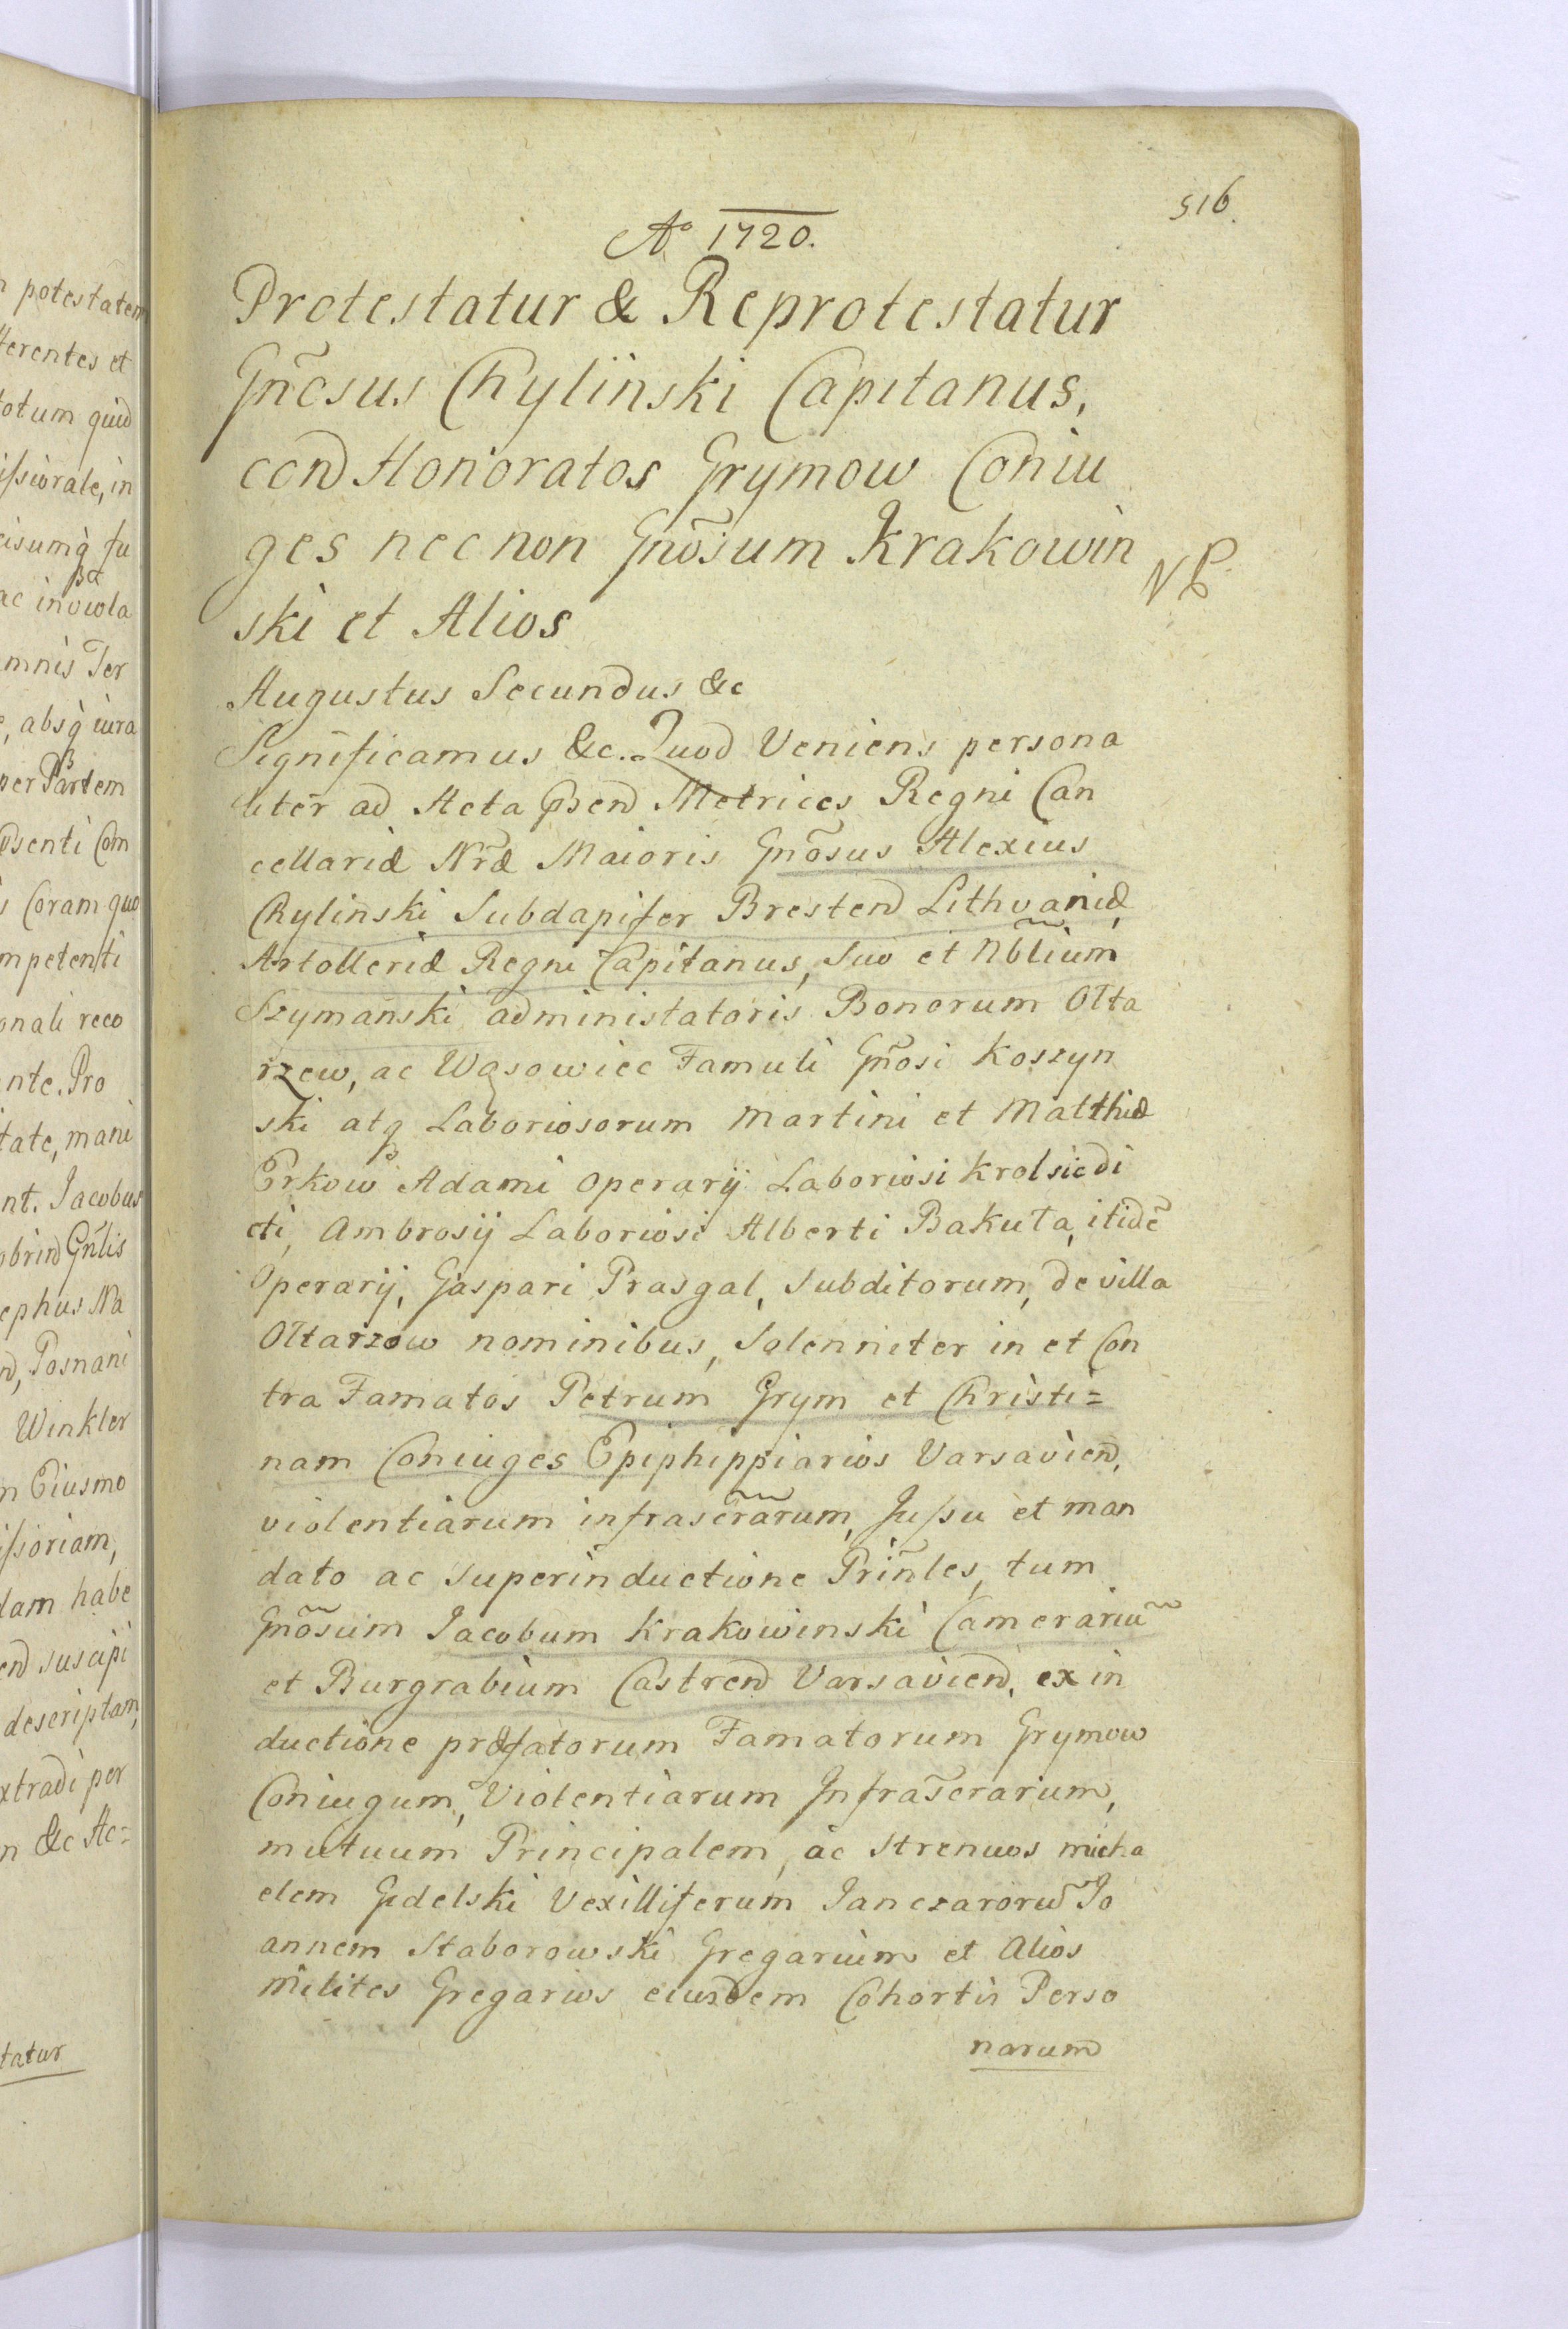 n potestatem
fferentes et
totum quid
issiorale, in
cisumq̀ su
ac inviola
omnis Ter
absq̀ iura
per Partem
Psenti Com
s Coram quo
ompetenti
onali reco
ente. Pro
itate, mani
nt. Jacobus
Gñlis
ephus Na
Posnani
Winkler
m Eiusmo
issoriam,
dam habe
end suscipi
descriptam,
xtradi per
n &c Ac=
tatur
516.
Aº 1720.
Protestatur & Reprotestatur
Gñosus Chylinski Capitanus,
con Honoratos Grymow Coniu
ges nec non Gñosum Krakowin
ski et Alios
Augustus Secundus &c
Significamus &c. Quod Veniens persona
liter ad Acta Psen Metrices Regni Can
cellariæ Nr̃æ Maioris Gnõsus Alexius
Chylinski Subdapifer Bresten Lithvaniæ,
Artolleriæ Regni Capitanus, suo et Nb̃lium
Szymański administatoris Bonorum Ołta
rzew, ac Wąsowiec Famuli Gñosi Koszyn
ski atq Laboriosorum Martini et Matthiæ
Erkow Adami Operarij Laboriosi Krolsiedi
cti, Ambrosij Laboriosi Alberti Bakuta, itidẽ
Operarij, Gaspari Prasgal, Subditorum, de villa
Ołtarzow nominibus, Solenniter in et Con
tra Famatos Petrum Grym et Christi=
nam Coniuges Epiphippiarios Varsavien,
violentiarum infrascr̃arum, Jussu et man
dato ac superinductione Prin̄les, tum
Gnõsum Jacobum Krakowinski Camerariũ
et Burgrabium Castren Varsavien, ex in
ductione præfatorum Famatorum Grymow
Coniugum, Violentiarum Infrascrarum,
mutuum Principalem, ac Strenuos Micha
elem Gidelski Vexilliferum Janczarorũ Jo
annem Staborowski Gregarium et Alios
milites Gregarios eiusdem Cohortis Perso
narum